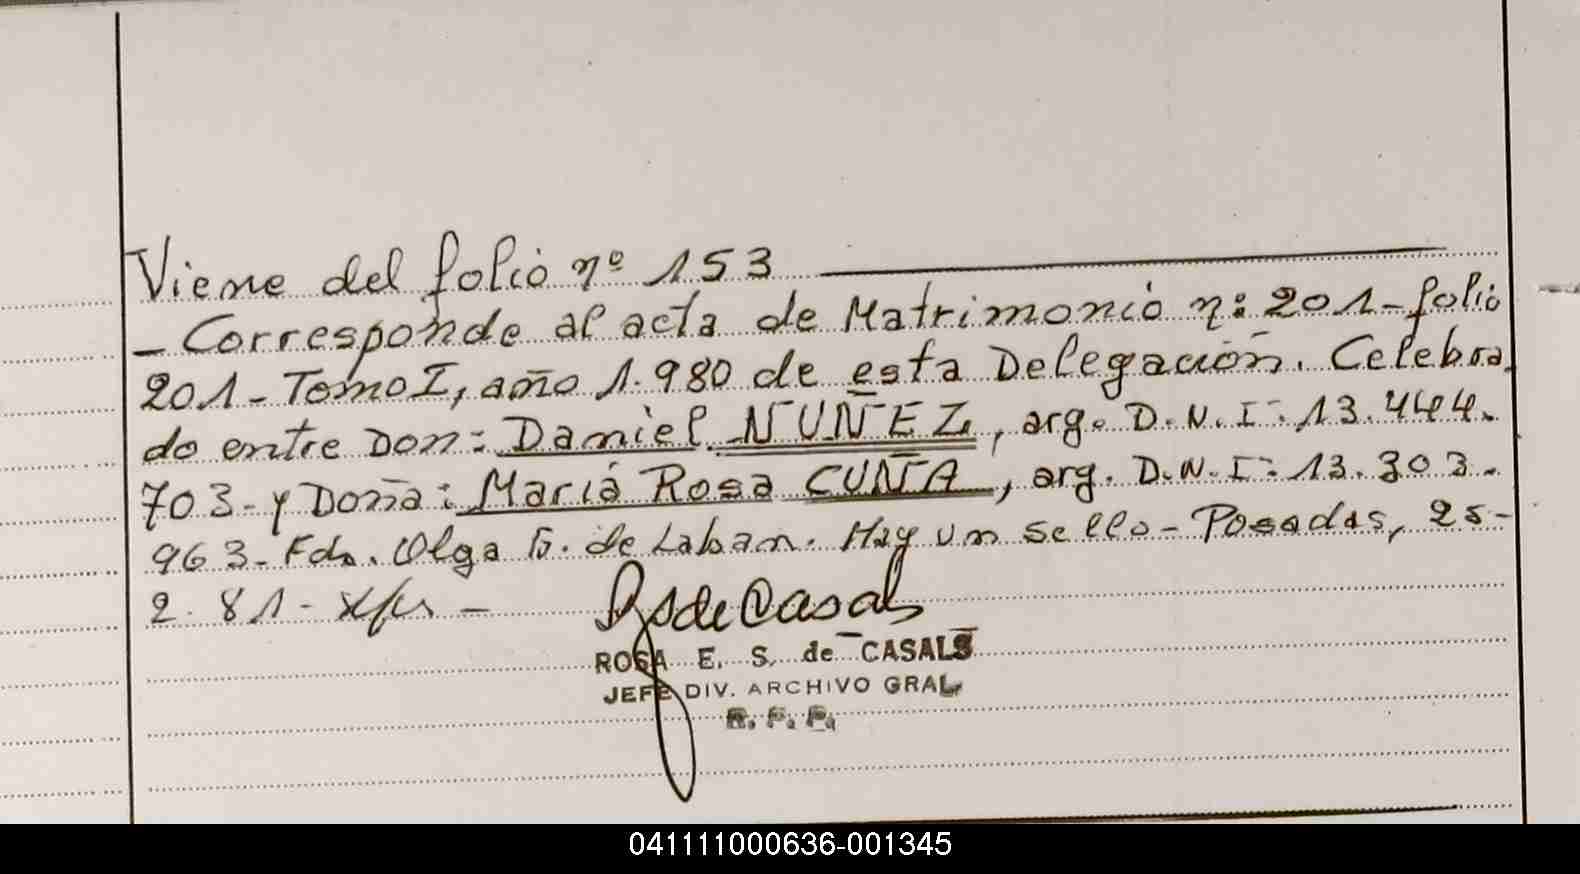 Viene del folio nº 153
- Corresponde al acta de Matrimonio n: 201 - folio
201 - Tomo I, año 1.980 de esta Delegación. Celebra
do entre Don: Daniel NUÑEZ, arg. D.N.I: 13.444.
703 - y Doña: María Rosa CUÑA, arg. D.N.I: 13.303.
963 - Fdo. Olga G. de Laban. Hay un sello - Posadas, 25-
2.81 -
RSde Casals
ROSA E. S. de CASALS
JEFE DIV. ARCHIVO GRAL
R. P. P.
041111000636-001345